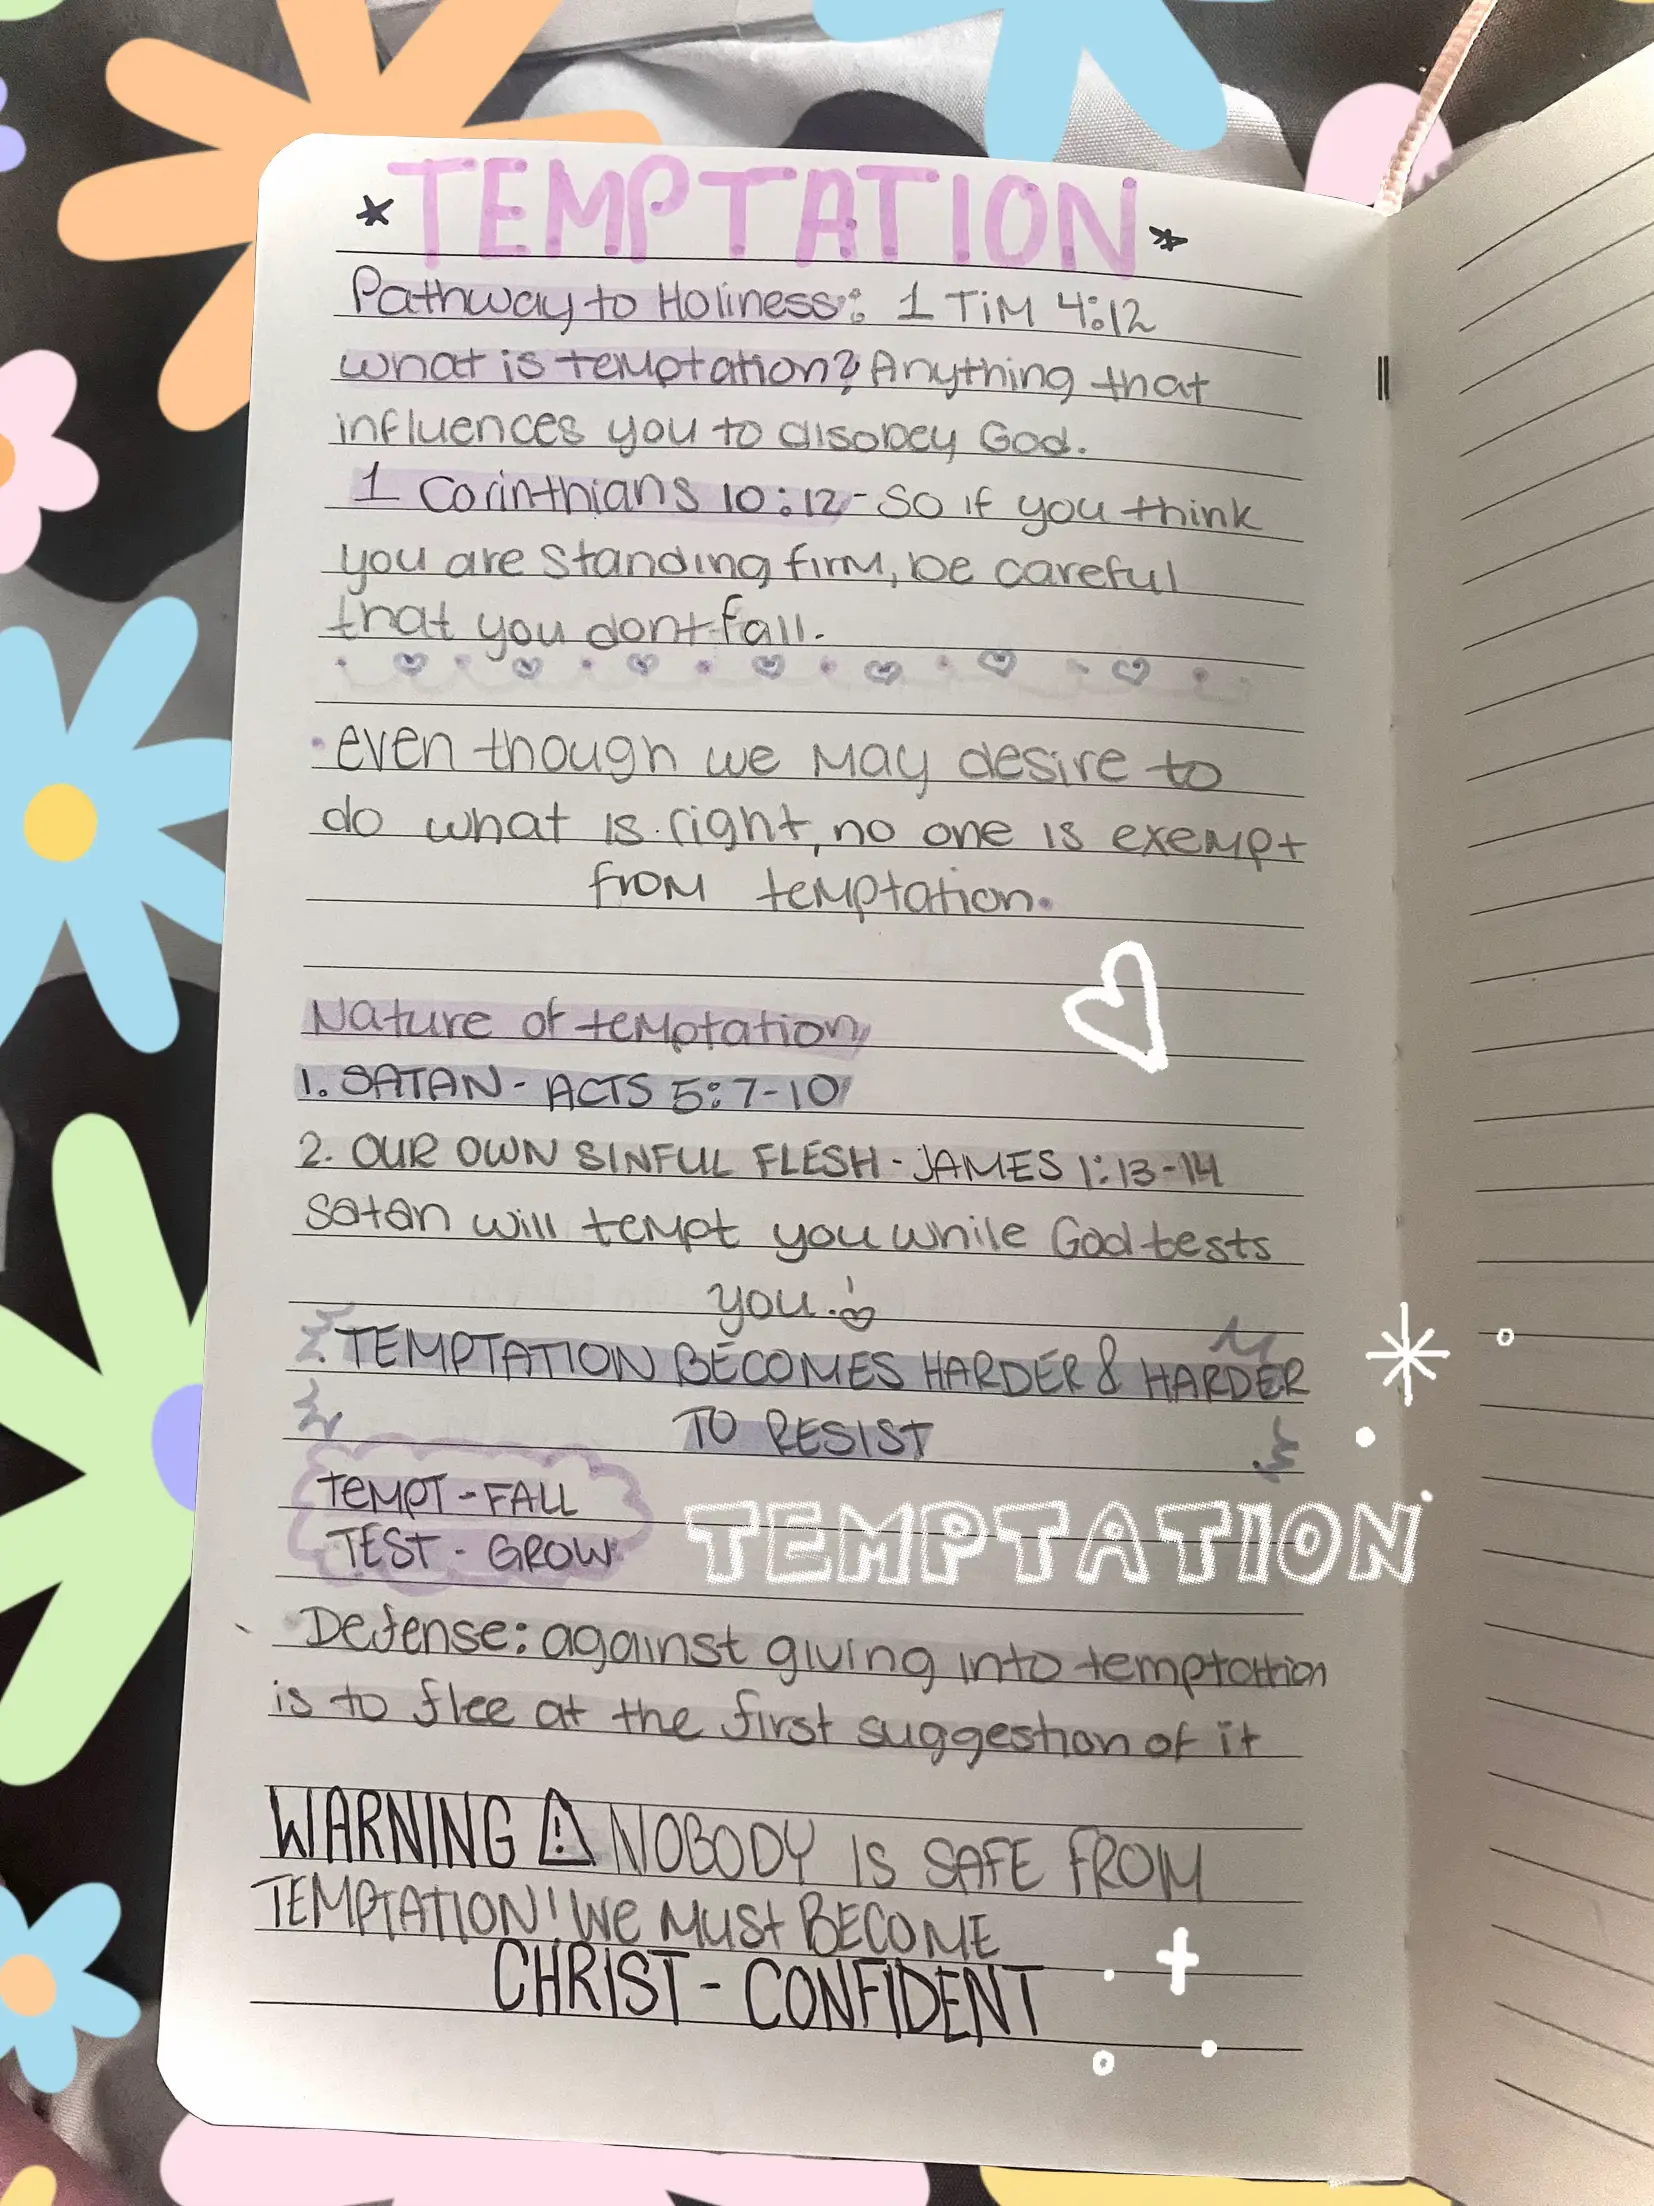 TEMPTATION
Pathway to Holiness: 1 TIM 4:12
what is temptation? Anything that
influences you to disobey God.
1 Corinthians 10:12 - So if you think
you are standing firm, be careful
that you dont fall.
• even though we may desire to
do what is right, no one is exempt
from temptation.
Nature of temptation
1. SATAN - ACTS 5:7-10
2. OUR OWN SINFUL FLESH - JAMES 1:13-14
Satan will tempt you while God tests
you.
TEMPTATION BECOMES HARDER & HARDER
TO RESIST
TEMPT - FALL
TEST - GROW
TEMPTATION
Defense: against giving into temptation
is to flee at the first suggestion of it
WARNING ⚠ NOBODY IS SAFE FROM
TEMPTATION! We Must BECOME
CHRIST - CONFIDENT